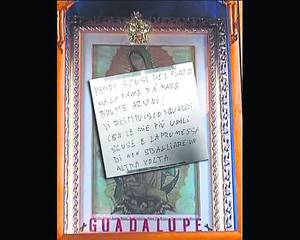 CHIEDO SCUSA DEL FURTO
MA LA FAME FA FARE
BRUTTE AZIONI
VI RESTITUISCO I QUADRI
CON LE MIE PIÙ UMILI
SCUSE E LA PROMESSA
DI NON SBAGLIARE UN
ALTRA VOLTA.
GUADALUPE